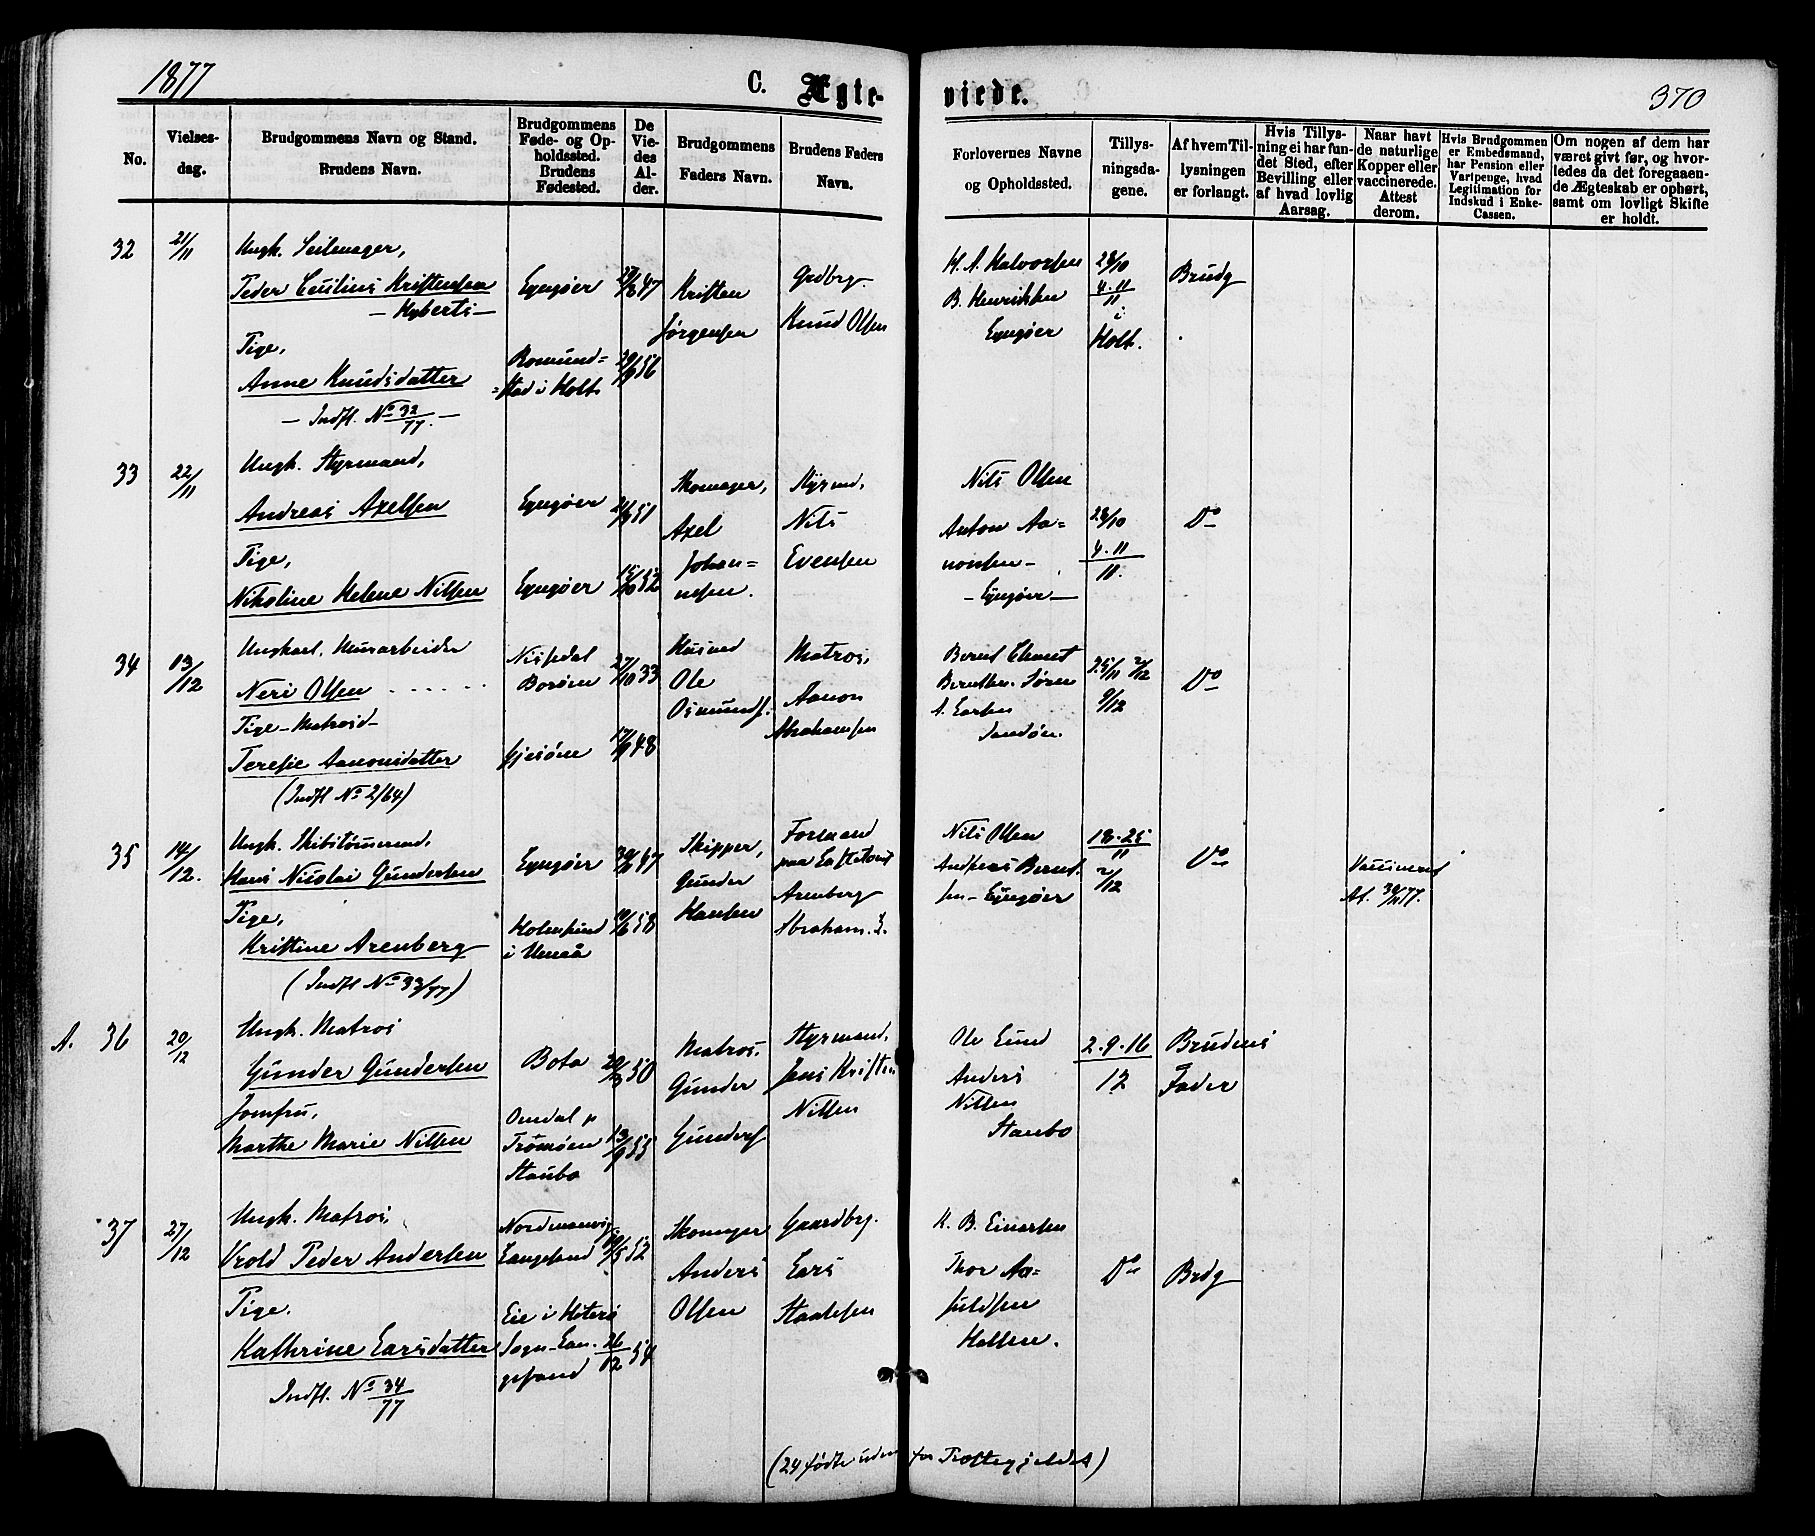 1877
C. Ægte- viede.
370
No.
Vielses-
dag.
Brudgommens Navn og Stand.
Brudens Navn.
Brudgommens
Føde- og Op-
holdssted.
Brudens
Fødested.
De
Vie-
des
Al-
der.
Brudgommens
Faders Navn.
Brudens Faders
Navn.
Forlovernes Navne
og Opholdssted.
Tillys-
ningsda-
gene.
Af hvem Til-
lysningen
er forlangt.
Hvis Tillys-
ning ei har fun-
det Sted, efter
Bevilling eller
af hvad lovlig
Aarsag.
Naar havt
de naturlige
Kopper eller
vaccinerede.
Attest
derom.
Hvis Brudgommen
er Embedsmand,
har Pension eller
Vartpenge, hvad
Legitimation for
Indskud i Enke-
Cassen.
Om nogen af dem har
været givt før, og hvor-
ledes da det foregaaen-
de Ægteskab er ophørt,
samt om lovligt Skifte
er holdt.
32
21/11
Ungk. Seilmager,
Peder Kristensen
Anne Knudsdatter
Tige,
— Indfl. No 32/77 —
Lyngøer
i Holt
Kristen
Jørgensen
Grdbrg.
Knud Olsen
H. A. Halvorsen
B. Henriksen
Lyngøer
28/10
4.11
11
i
Holt.
Brudg
33
22/11
Ungk. Styrmand,
Andreas Axelsen
Tige,
Nikoline Helene Nilsen
Lyngøer
Lyngøer
15/10 52
Skomager,
Axel
Johan=
nesen.
Styrmd.
Nils
Evensen
Nils Olsen
Anton Aa=
nonsen —
— Lyngøer —
28/10
4.11
11.
Do
34
13/12
Ungkarl. Murarbeider
Neri Olsen
Tige - Matrosd-
Terese Aanonsdatter
(Indfl No 2/64)
Nissedal
Borøen
Gjesøne
27/10 33
Husmd
Ole
Osmunds.
Matros,
Aanon
Abrahamsen
Berntsen. Søren
A. Larsen
Sandøen.
25/11 2/12
9/12
Do
35
14/12.
Ungk. Skibstømmermd.
Hans Nicolai Gundersen
Tige,
Kristine Arenberg
(Indfl No 33/77)
Lyngøer
Skipper,
Gunder
Hansen
Formand
paa
Arenberg
Abraham
Nils Olsen
Andreas Bernt.
sen — Lyngøer
18.25
11
2/12
Do
Vaccineret
At. 30/11 77.
A. 36
20/12
Ungk. Matros
Gunder Gundersen
Jomfru,
Marthe Marie Nilsen
Bota
Omdal p
Tromøen
Staubo
13/9 55
Matros,
Gunder
Gunders
Styrmand,
Jens Kristen
Nilsen
Ole Lund
Anders
Nilsen
Staubo
2.9.16
12
Brudens
Fader
37
27/12
Ungk. Matros,
Vrold Peder Andersen
Tige.
Kathrine Larsdatter
Indfl. No 34/77
Nordmansvig
Langesund
Eie i
Sogn
26/12 54
Skomager
Anders
Olsen
Gaardbrg.
Lars
Staalesen
K. B. Einarsen
Thor Aa=
Do
Brdg
(24 fødte uden for Præstegjeldet)